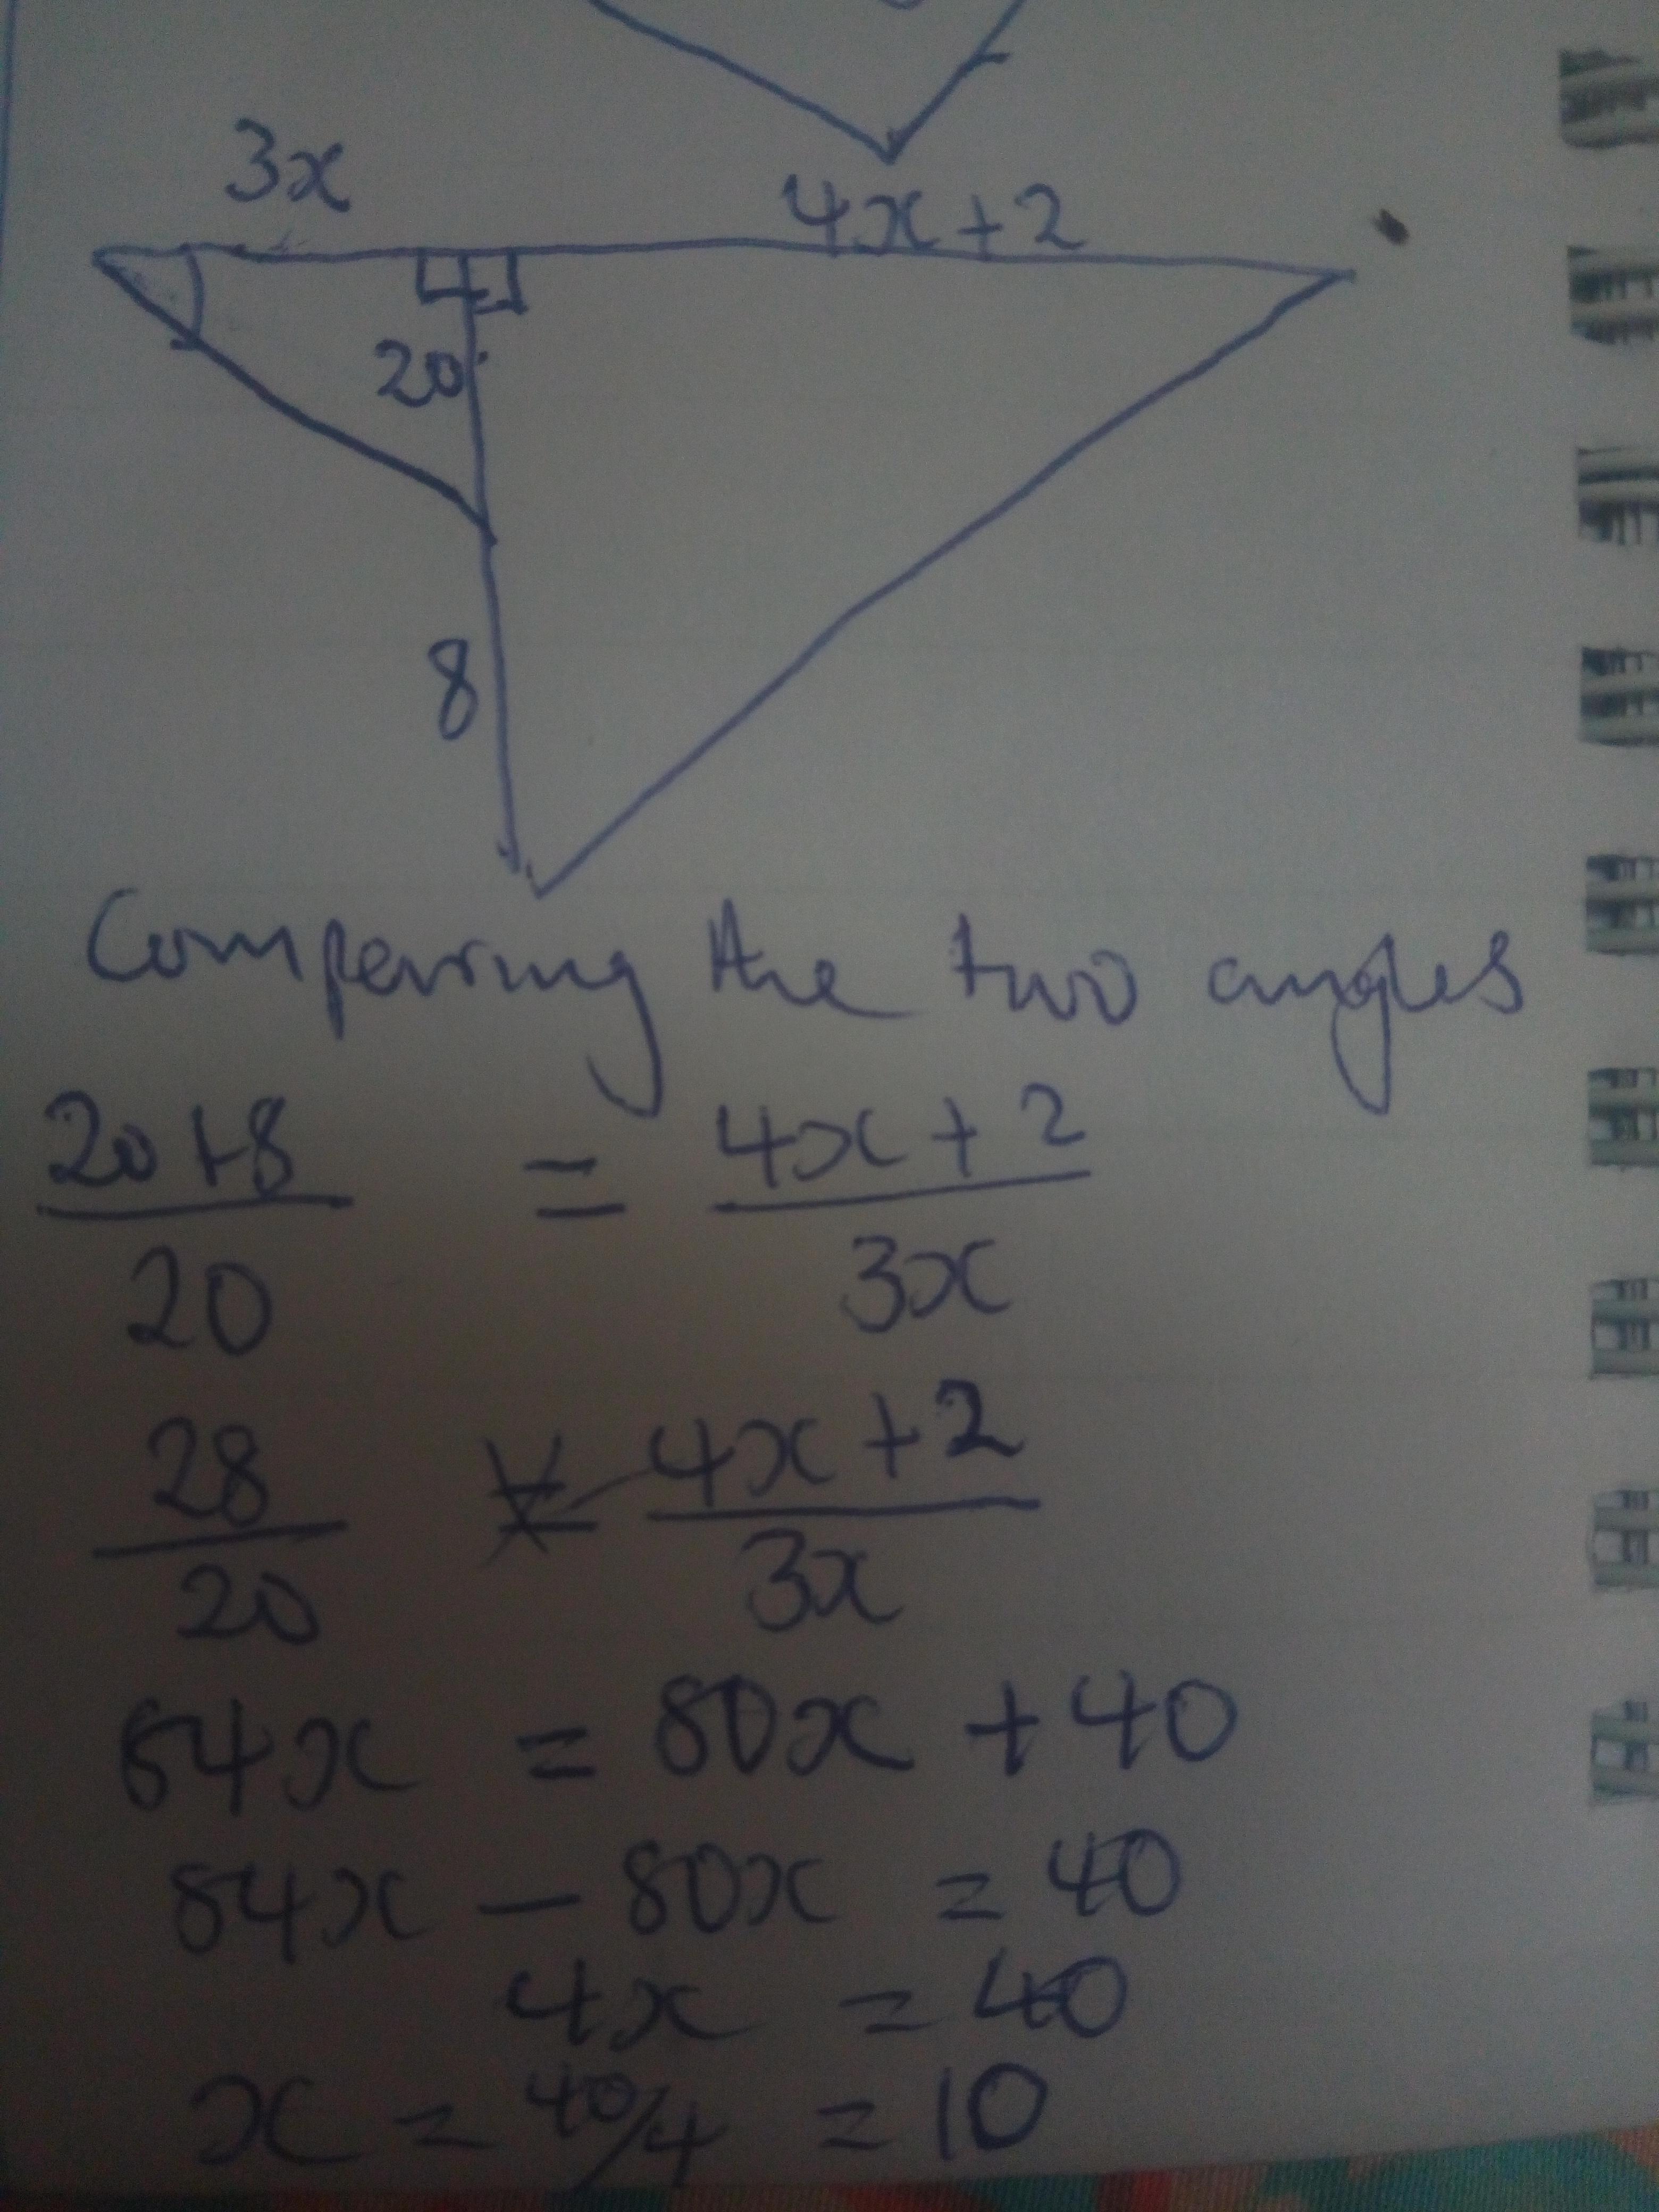 3x
4x+2
20
8
Comparing the two angles
20+8 = 4x+2
20 3x
28 = 4x+2
20 3x
84x = 80x + 40
84x - 80x = 40
4x = 40
x = 40/4 = 10